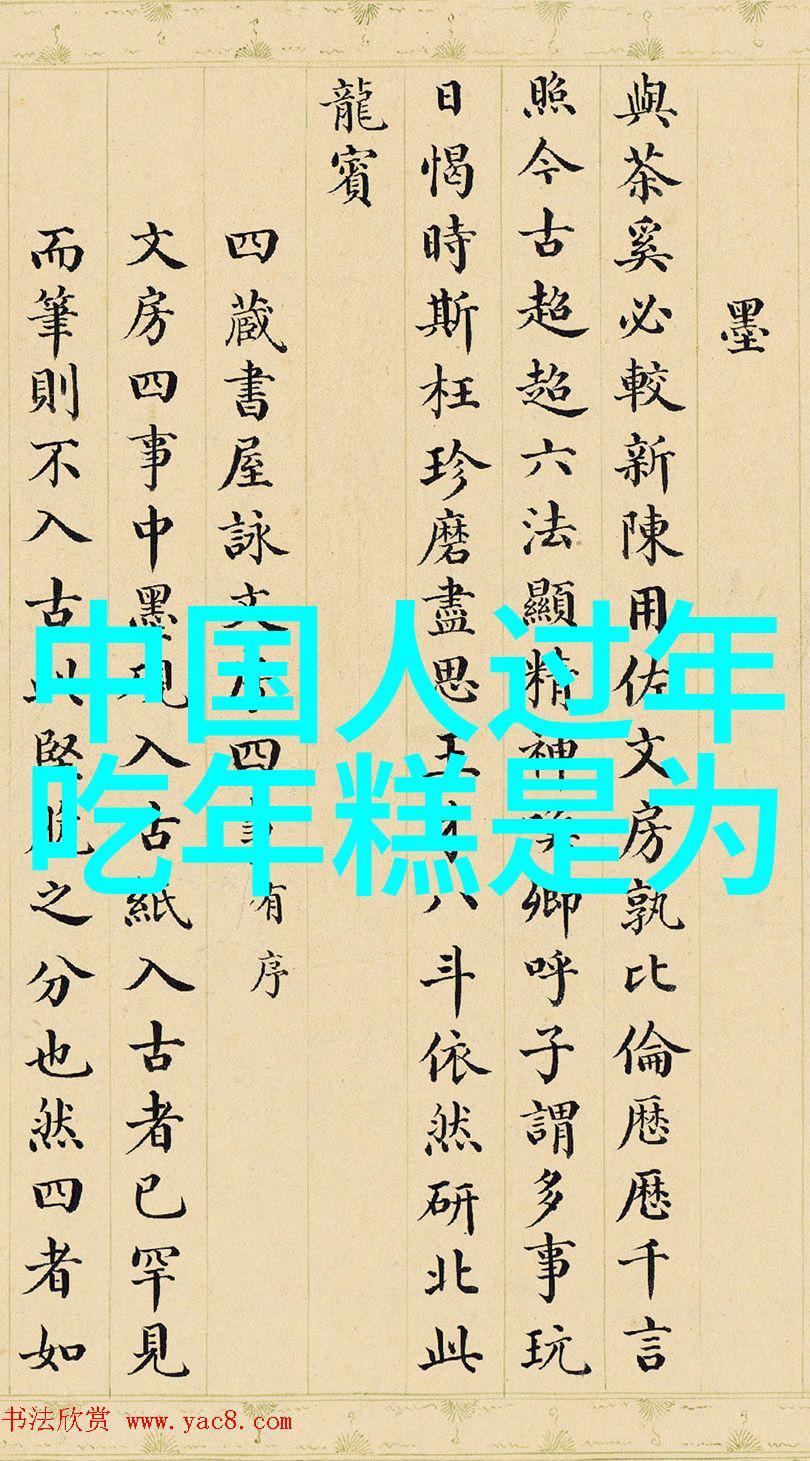 墨
與茶奚必較新陳用佐文房孰比倫歷歷千言
照今古超超六法顯精神 卿呼子謂多事玩
日愒時斯枉珍磨盡思王才八斗依然研北此
龍賓
四蔵書屋詠文房四事有序
文房四事中墨硯入古紙入古者已罕見
而筆則不入古此堅脆之分也然四者如
中国人过年
吃年糕是为
书法欣赏 www.yac8.com